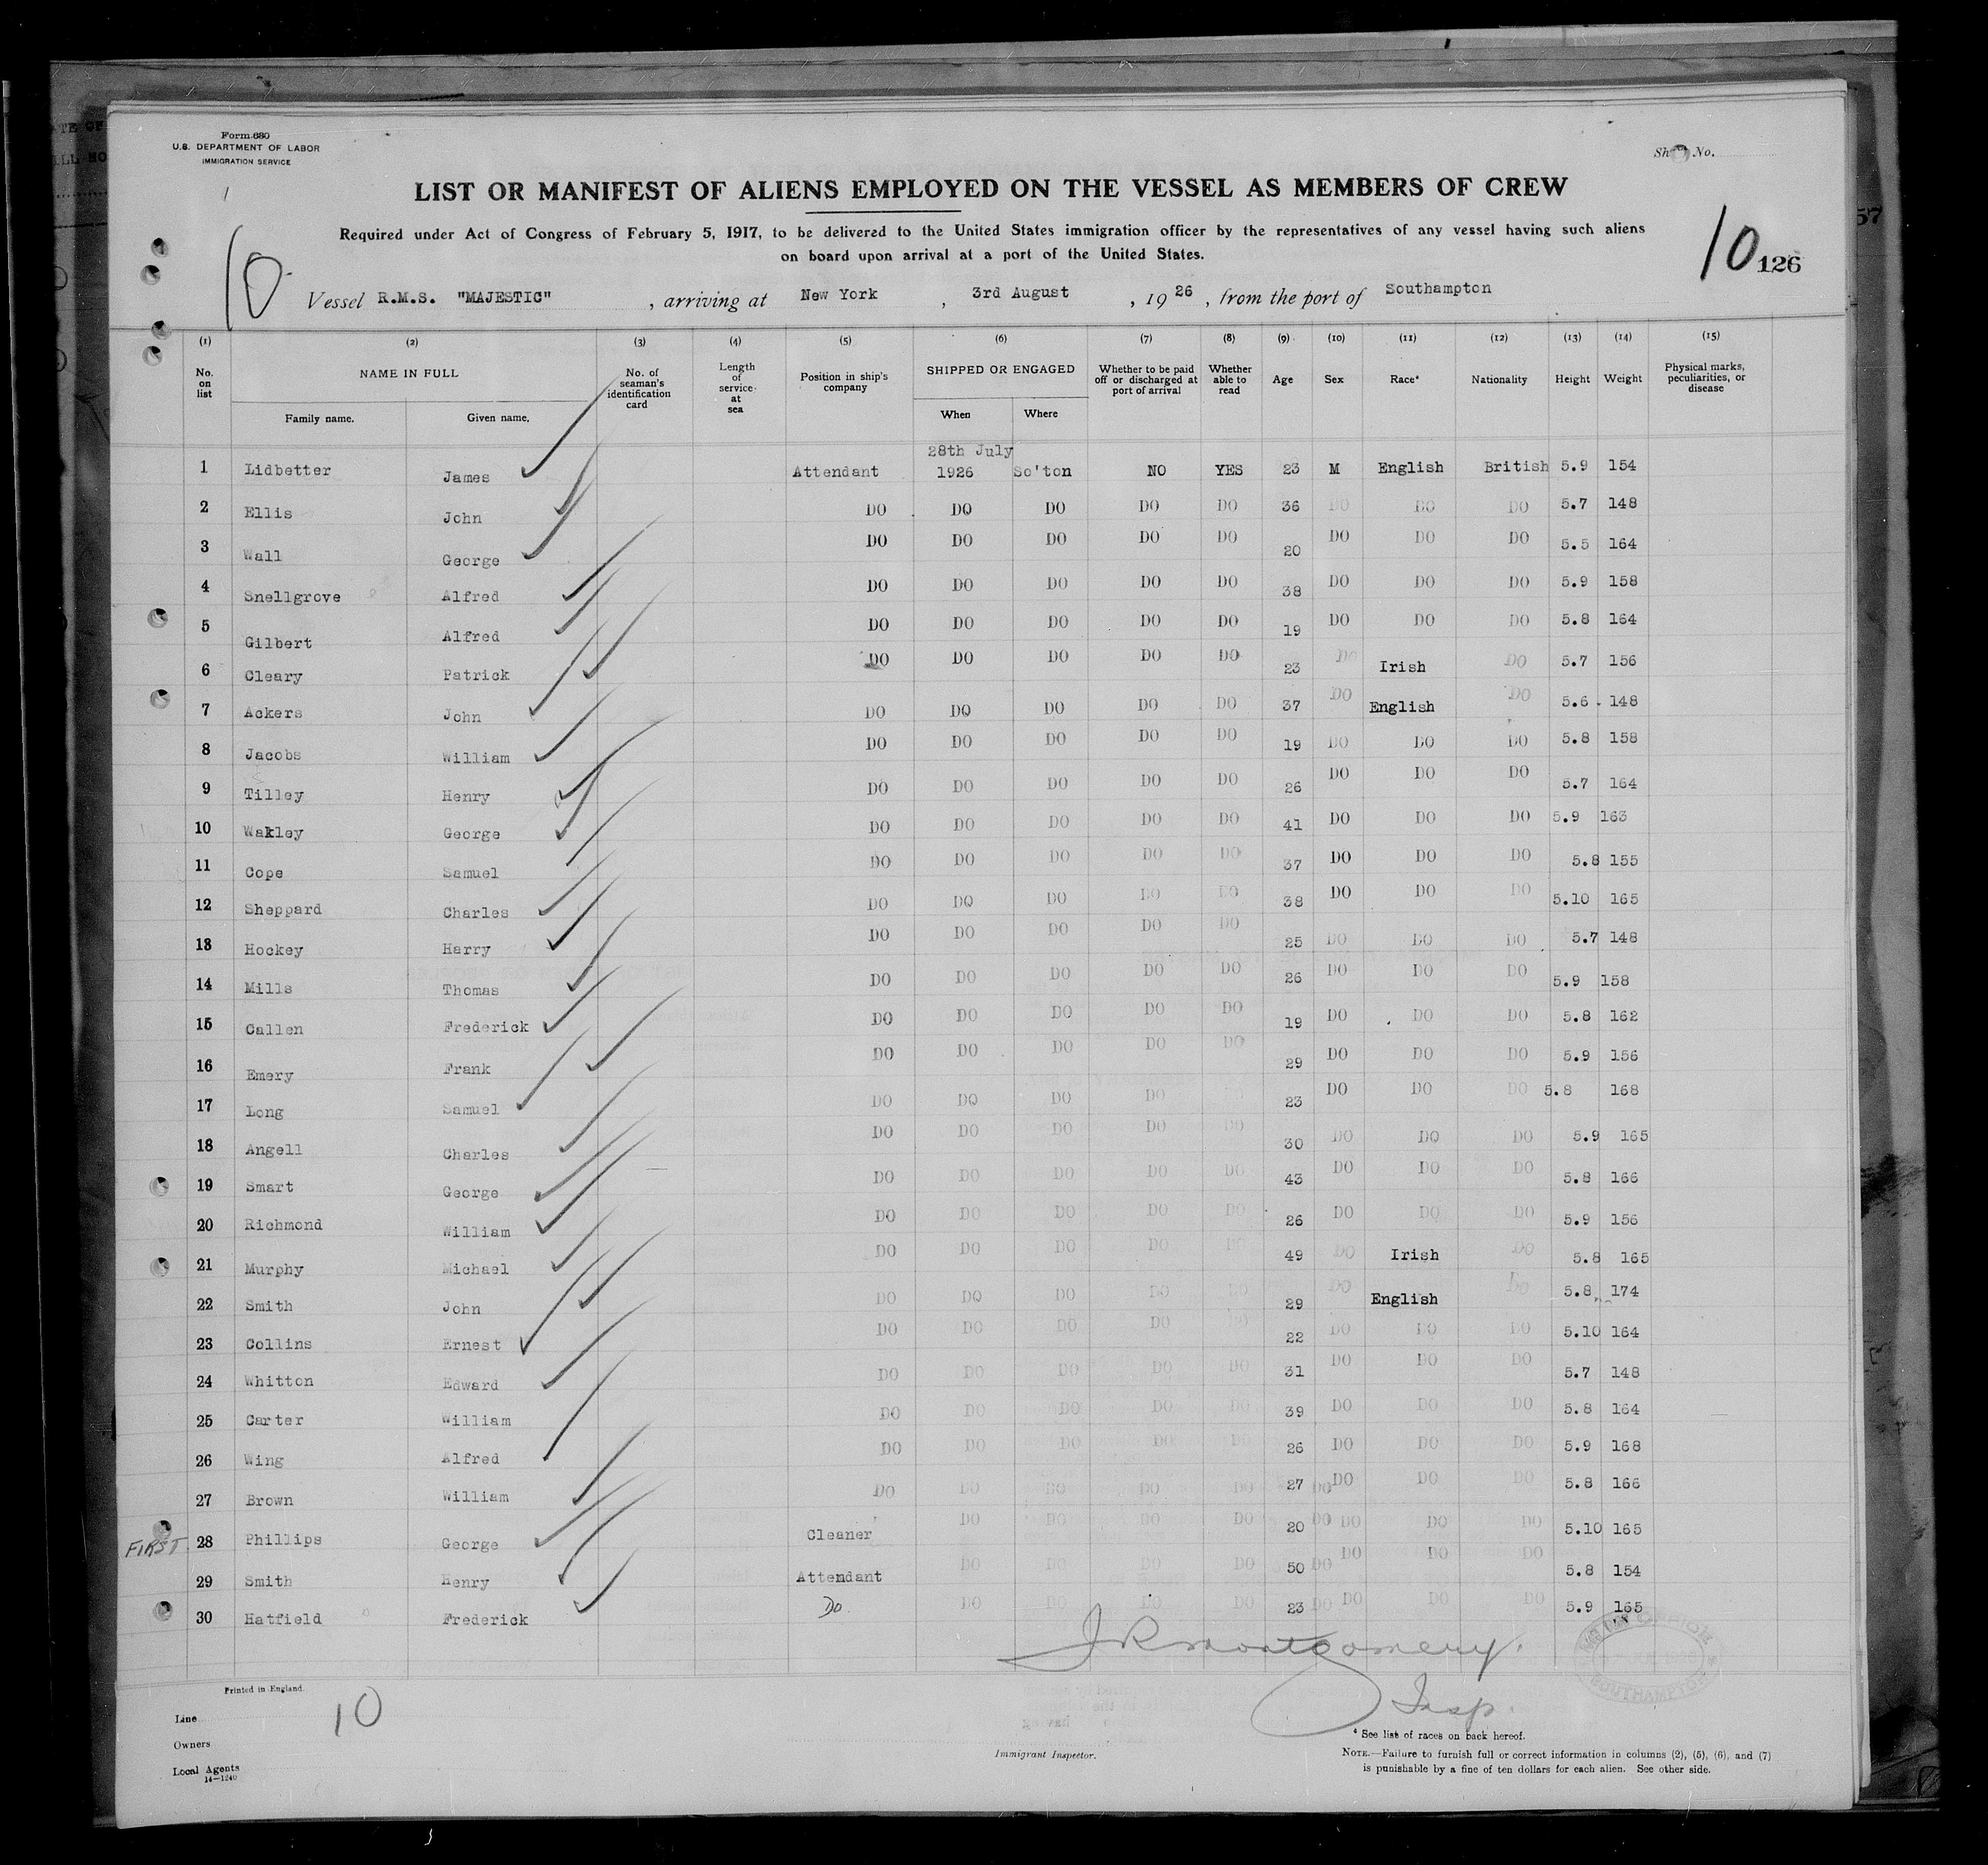 Form 680
U.S. DEPARTMENT OF LABOR
IMMIGRATION SERVICE
No.
LIST OR MANIFEST OF ALIENS EMPLOYED ON THE VESSEL AS MEMBERS OF CREW
Required under Act of Congress of February 5, 1917, to be delivered to the United States immigration officer by the representatives of any vessel having such aliens
on board upon arrival at a port of the United States.
10
10 126
Vessel R.M.S. "MAJESTIC", arriving at New York, 3rd August, 1926, from the port of Southampton
(1) (2) (3) (4) (5) (6) (7) (8) (9) (10) (11) (12) (13) (14) (15)
No. on list NAME IN FULL No. of seaman's identification card Length of service at sea Position in ship's company SHIPPED OR ENGAGED Whether to be paid off or discharged at port of arrival Whether able to read Age Sex Race* Nationality Height Weight Physical marks, peculiarities, or disease
Family name. Given name. When Where
28th July
1 Lidbetter James Attendant 1926 So'ton NO YES 23 M English British 5.9 154
2 Ellis John DO DO DO DO DO 36 DO DO DO 5.7 148
3 Wall George DO DO DO DO DO 20 DO DO DO 5.5 164
4 Snellgrove Alfred DO DO DO DO DO 38 DO DO DO 5.9 158
5 Gilbert Alfred DO DO DO DO DO 19 DO DO DO 5.8 164
6 Cleary Patrick DO DO DO DO DO 23 DO Irish DO 5.7 156
7 Ackers John DO DO DO DO DO 37 DO English DO 5.6 148
8 Jacobs William DO DO DO DO DO 19 DO DO DO 5.8 158
9 Tilley Henry DO DO DO DO DO 26 DO DO DO 5.7 164
10 Wakley George DO DO DO DO DO 41 DO DO DO 5.9 163
11 Cope Samuel DO DO DO DO DO 37 DO DO DO 5.8 155
12 Sheppard Charles DO DO DO DO DO 38 DO DO DO 5.10 165
13 Hockey Harry DO DO DO DO DO 25 DO DO DO 5.7 148
14 Mills Thomas DO DO DO DO DO 26 DO DO DO 5.9 158
15 Callen Frederick DO DO DO DO DO 19 DO DO DO 5.8 162
16 Emery Frank DO DO DO DO DO 29 DO DO DO 5.9 156
17 Long Samuel DO DO DO DO 23 DO DO DO 5.8 168
18 Angell Charles DO DO DO DO DO 30 DO DO DO 5.9 165
19 Smart George DO DO DO DO DO 43 DO DO DO 5.8 166
20 Richmond William DO DO DO DO DO 26 DO DO DO 5.9 156
21 Murphy Michael DO DO DO DO DO 49 DO Irish DO 5.8 165
22 Smith John DO DO DO DO DO 29 DO English DO 5.8 174
23 Collins Ernest DO DO DO DO DO 22 DO DO DO 5.10 164
24 Whitton Edward DO DO DO DO DO 31 DO DO DO 5.7 148
25 Carter William DO DO DO DO DO 39 DO DO DO 5.8 164
26 Wing Alfred DO DO DO DO DO 26 DO DO DO 5.9 168
27 Brown William DO DO DO DO DO 27 DO DO DO DO 5.8 166
FIRST 28 Phillips George Cleaner DO DO DO DO 20 DO DO DO DO 5.10 165
29 Smith Henry Attendant DO DO DO DO 50 DO DO DO DO 5.8 154
30 Hatfield Frederick Do DO DO DO DO 23 DO DO DO DO 5.9 165
J R Montgomery.
Insp.
SOUTHAMPTON
Printed in England.
10
Line
Owners
Local Agents
14—1240
Immigrant Inspector.
* See list of races on back hereof.
NOTE.—Failure to furnish full or correct information in columns (2), (5), (6), and (7)
is punishable by a fine of ten dollars for each alien. See other side.